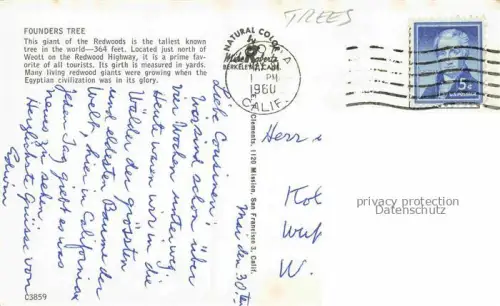 TREES
FOUNDERS TREE
This giant of the Redwoods is the tallest known
tree in the world—364 feet. Located just north of
Weott on the Redwood Highway, it is a prime fav-
orite of all tourists. Its girth is measured in yards.
Many living redwood giants were growing when the
Egyptian civilization was in its glory.
NATURAL COLOR
BERKELEY, CALIF.
PM
1960
CALIF.
5c
Clements, 1120 Mission, San Francisco 3, Calif.
Mai den 30.
Liebe Cousinen!
Wir sind schon über
vier Wochen unterweg.
Heute waren wir in die
Wälder der grössten
und eldesten Bäume der
Welt, hier in California
Jeden Tag giebt es was
neues zu sehen
Herzlichste Grüsse von
Edwin
Herr
W.
privacy protection
Datenschutz
C3859